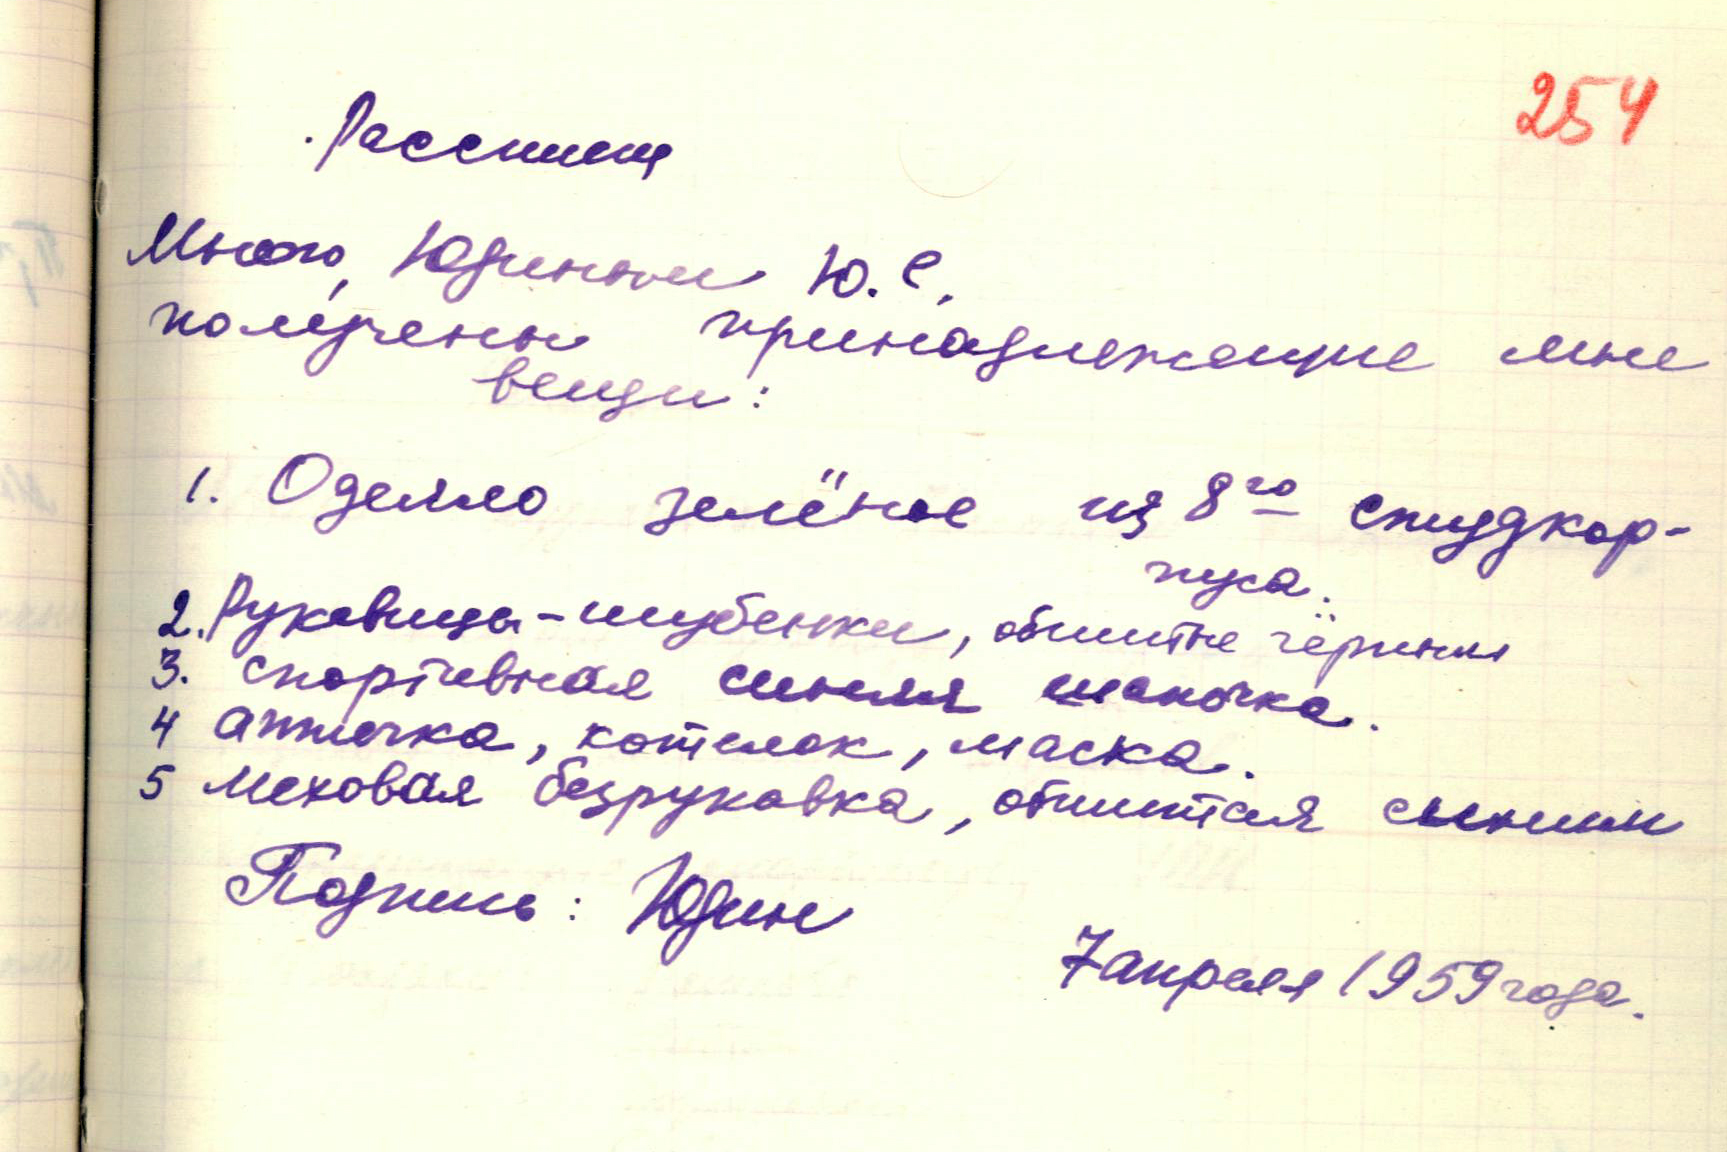 254
Расписка
Мною, Юдиным Ю. Е.
получены принадлежащие мне
вещи:
1. Одеяло зелёное из 8го студкор-
пуса.
2. Рукавицы-шубенки, обшитые чёрным
3. спортивная синяя шапочка.
4 аптечка, котелок, маска.
5 меховая безрукавка, обшитая синим
Подпись: Юдин
7 апреля 1959 года.